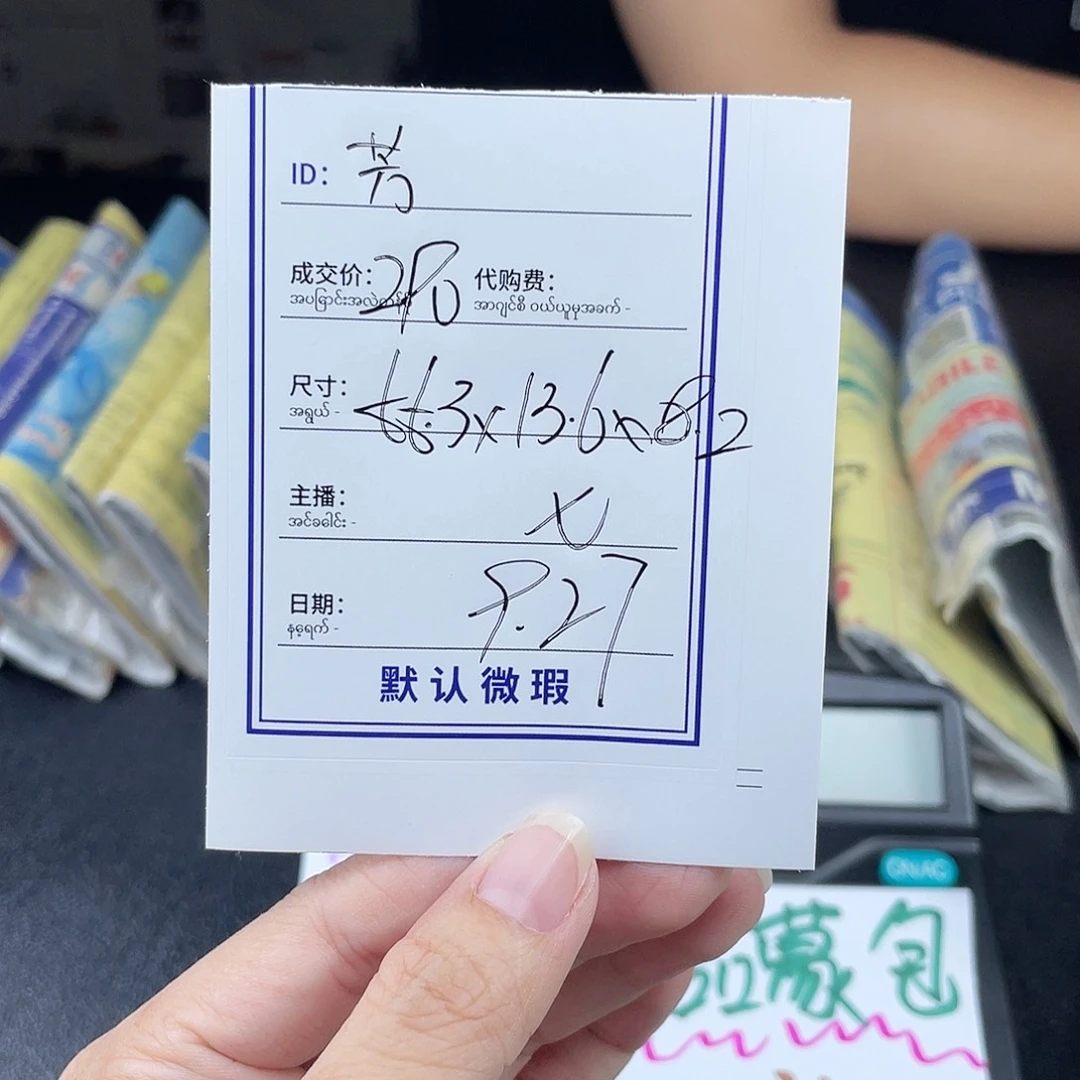 ID: 芳
成交价: 290 代购费:
အပြောင်းအလဲတန်ဖိုး အာဂျင်စီ ဝယ်ယူမှုအခက် -
尺寸: <66.3x13.6x8.2
အရွယ် -
主播:
အင်ခခေါင်း -
日期: 9.27
နေ့ရက် -
默认微瑕
蒙包